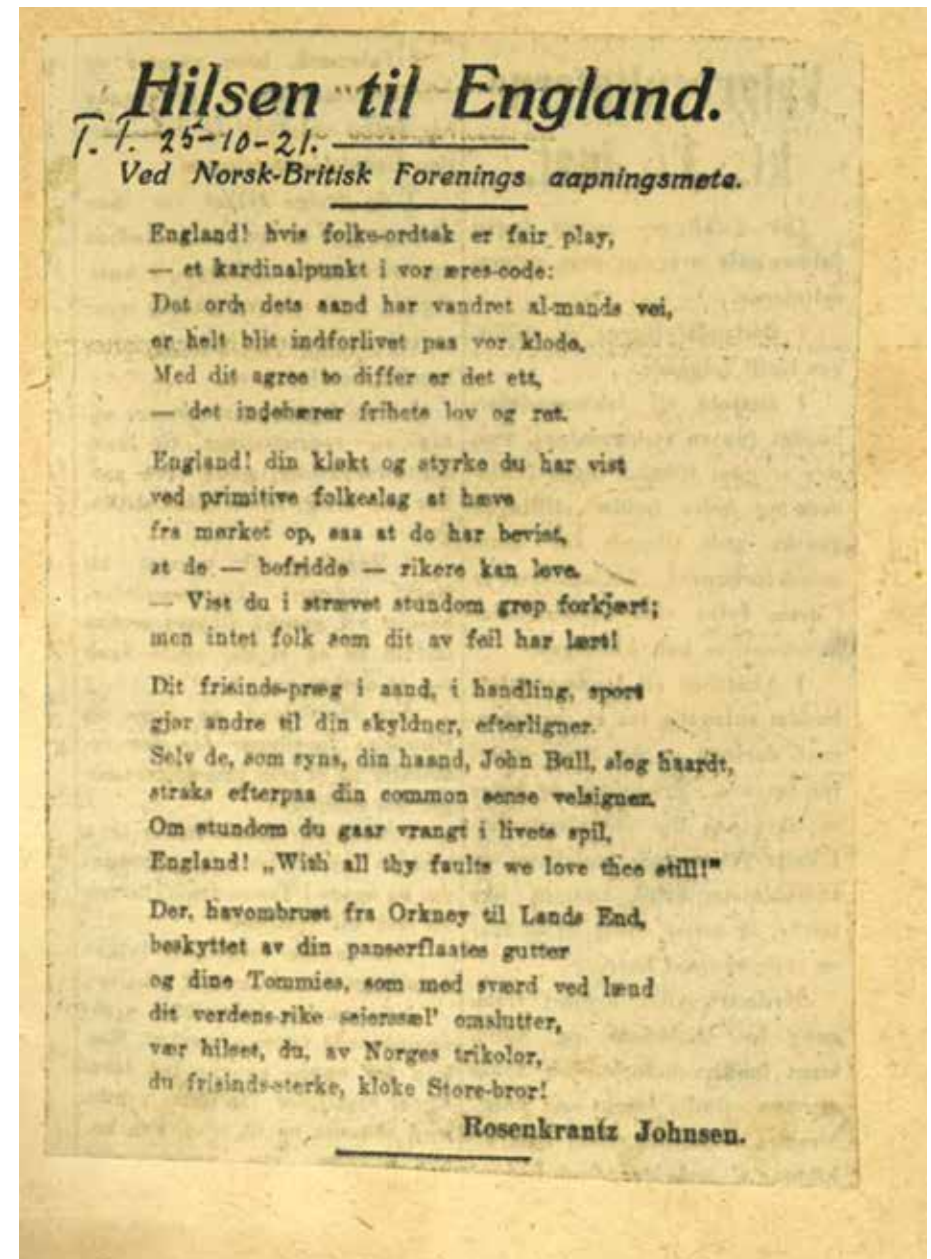 Hilsen til England.
T. T. 25-10-21.
Ved Norsk-Britisk Forenings aapningsmøte.
England! hvis folke-ordtak er fair play,
— et kardinalpunkt i vor æres-code:
Det ord, dets aand har vandret al-mands vei,
er helt blit indforlivet paa vor klode.
Med dit agree to differ er det ett,
— det indebærer frihets lov og ret.
England! din kløkt og styrke du har vist
ved primitive folkeslag at hæve
fra mørket op, saa at de har bevist,
at de — befridde — rikere kan leve.
— Vist du i strævet stundom grep forkjært;
men intet folk som dit av feil har lært!
Dit frisinds-præg i aand, i handling, sport
gjør andre til din skyldner, efterligner.
Selv de, som syns, din haand, John Bull, slog haardt,
straks efterpaa din common sense velsigner.
Om stundom du gaar vrangt i livets spil,
England! „With all thy faults we love thee still!"
Der, havombrust fra Orkney til Lands End,
beskyttet av din panserflaates gutter
og dine Tommies, som med sværd ved lænd
dit verdens-rike seierssæl' omslutter,
vær hilset, du, av Norges trikolor,
du frisinds-sterke, kloke Store-bror!
Rosenkrantz Johnsen.